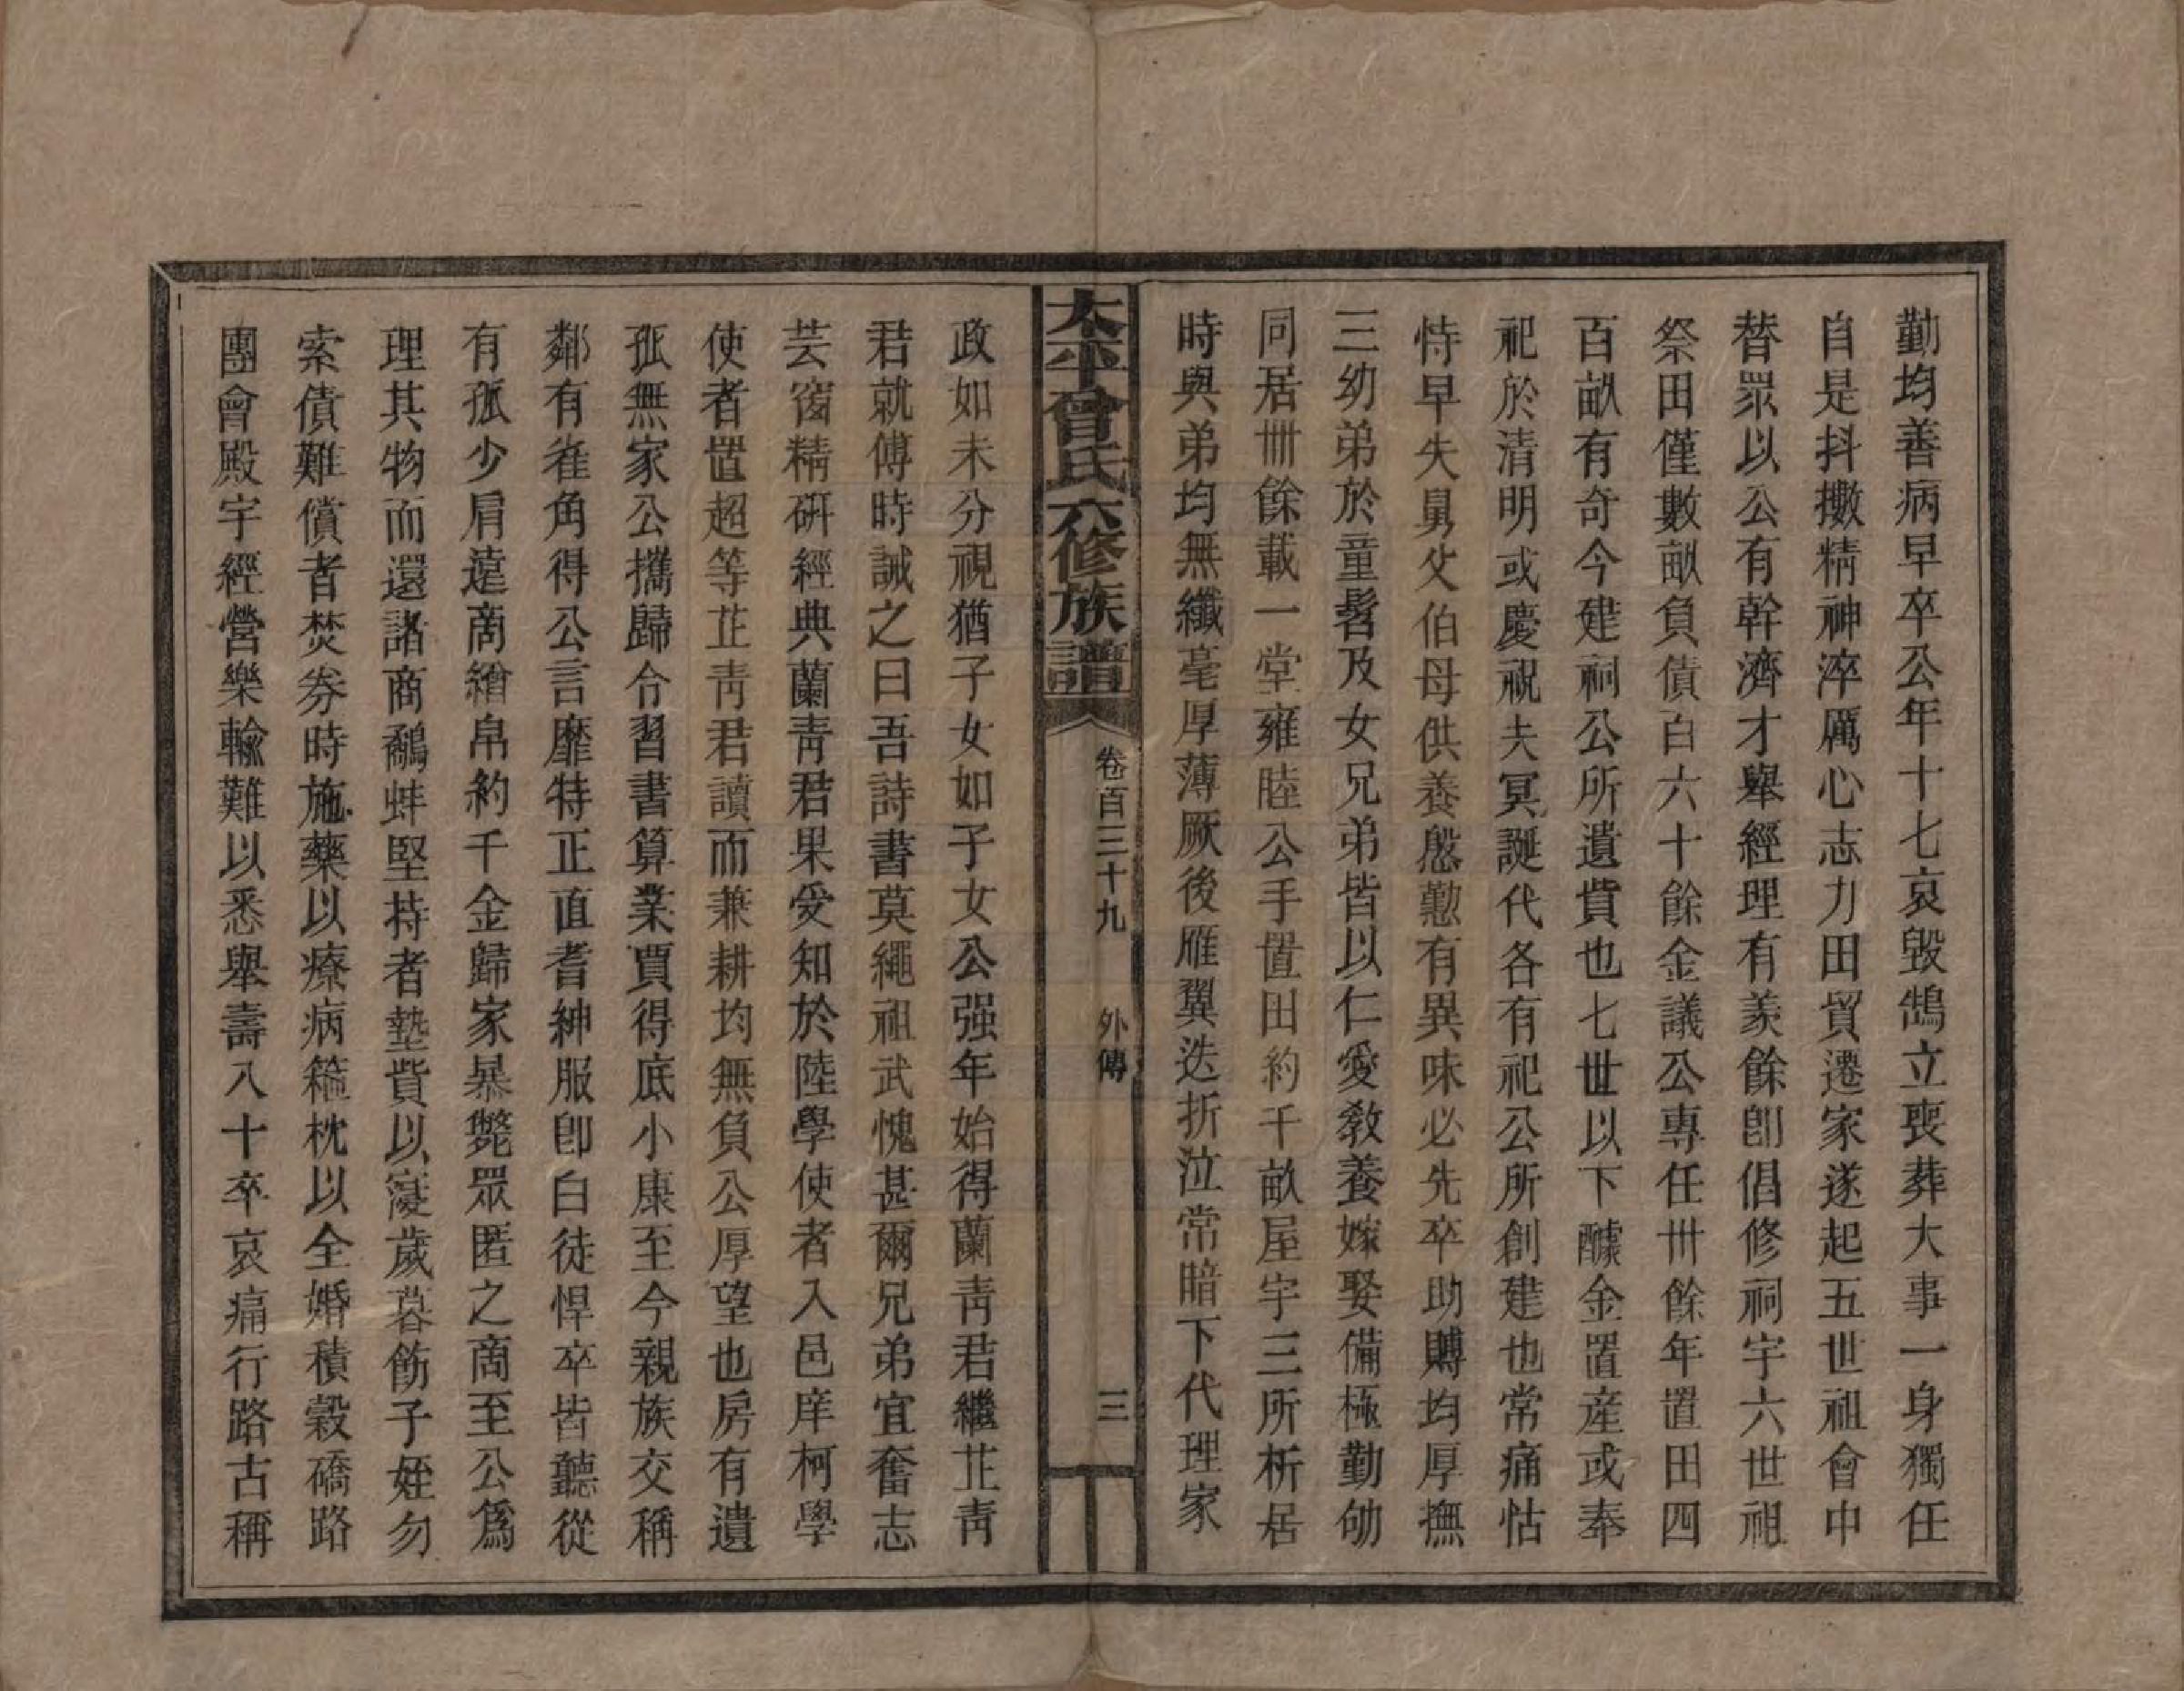 勤均善病早卒公年十七哀毀鵠立喪葬大事一身獨任
自是抖擻精神淬厲心志力田貿遷家遂起五世祖會中
替眾以公有幹濟才舉經理有羨餘卽倡修祠宇六世祖
祭田僅數畝負債白六十餘金議公專任卅餘年置田四
百畝有奇今建祠公所遺貲也七世以下醵金置産或奉
祀於清明或慶祝夫冥誕代各有祀公所創建也常痛怙
恃早失舅父伯母供養慇懃有異味必先卒助賻均厚撫
三幼弟於童髫及女兄弟皆以仁愛敎養嫁娶備極勤劬
同居卌餘載一堂雍睦公手置田約千畝屋宇三所析居
時與弟均無纖毫厚薄厥後雁翼迭折泣常暗下代理家
太平曾氏六修族譜
卷百三十九
外傳
三
政如未分視猶子女如子女公强年始得蘭靑君繼芷靑
君就傅時誡之曰吾詩書莫繩祖武愧甚爾兄弟宜奮志
芸窗精研經典蘭靑君果受知於陸學使者入邑庠柯學
使者置超等芷靑君讀而兼耕均無負公厚望也房有遺
孤無家公攜歸令習書算業賈得底小康至今親族交稱
鄰有雀角得公言靡特正直耆紳服卽白徒悍卒皆聽從
有孤少肩遠商繒帛約千金歸家暴斃眾匿之商至公爲
理其物而還諸商鷸蚌堅持者墊貲以寢歲暮飭子姪勿
索債難償者焚券時施藥以療病箍枕以全婚積穀礄路
團會殿宇經營樂輸難以悉舉壽八十卒哀痛行路古稱